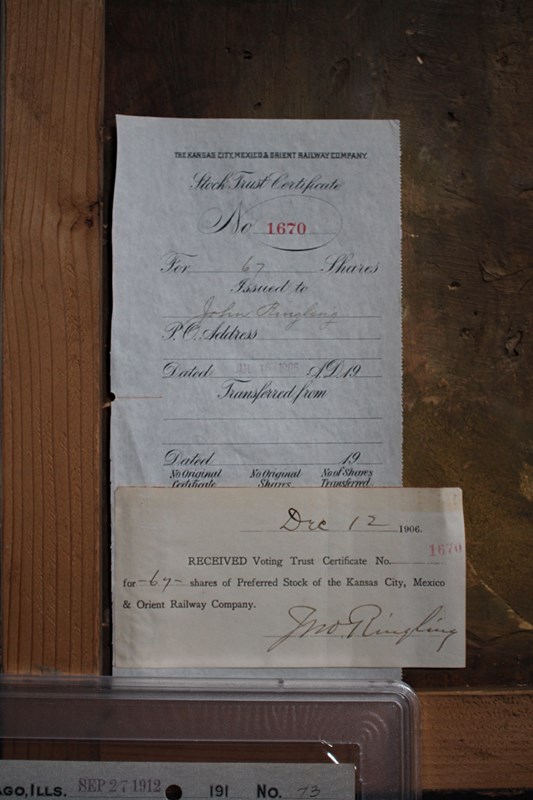 THE KANSAS CITY, MEXICO & ORIENT RAILWAY COMPANY.
Stock Trust Certificate
No 1670
For 67 Shares
Issued to
John Ringling
P.O. Address
Dated 1906 A.D. 19
Transferred from
Dated 19
No Original No Original No of Shares
Certificate Shares Transferred
Dec 12 1906.
RECEIVED Voting Trust Certificate No. 1670
for -67- shares of Preferred Stock of the Kansas City, Mexico
& Orient Railway Company.
Jno. Ringling
AGO, ILLS. SEP 27 1912 191 No. 73